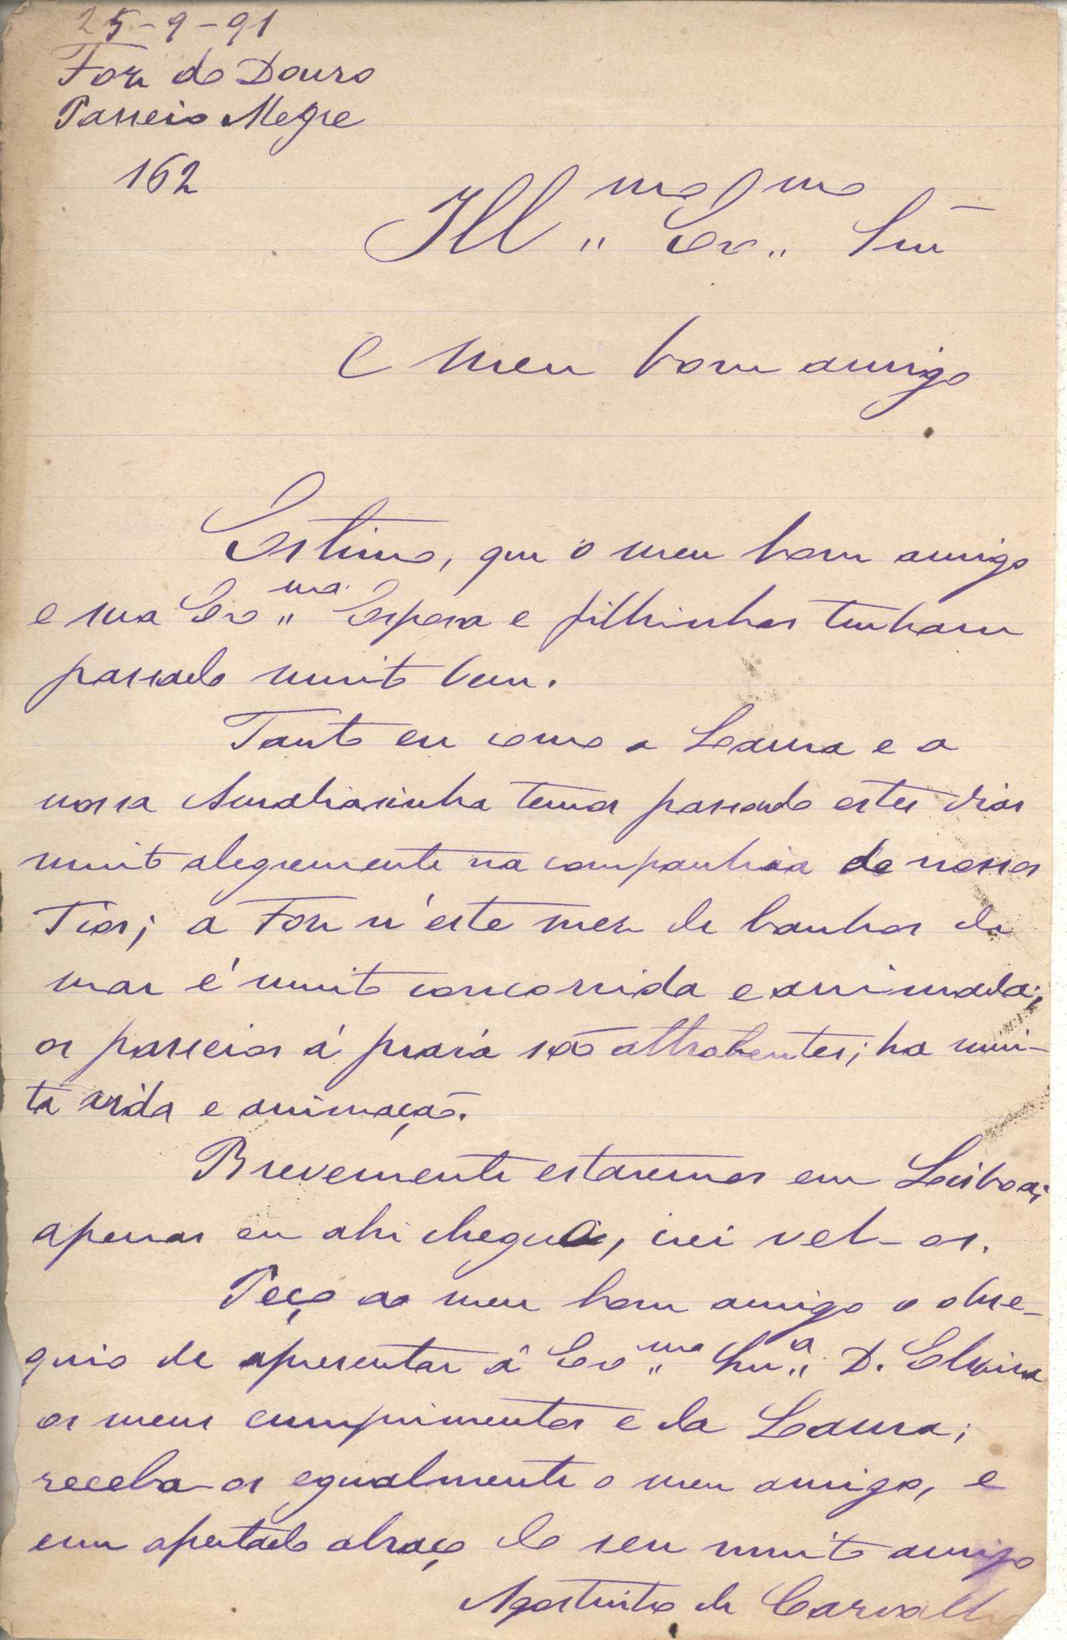 25-9-91
Foz do Douro
Passeio Alegre
162
Ill.mo Ex.mo Snr
e meu bom amigo
Estimo, que o meu bom amigo
e sua Ex.ma Esposa e filhinhos tenham
passado muito bem.
Tanto eu como a Laura e a
nossa Amaliasinha temos passado estes dias
muito alegremente na companhia de nossos
Tios; a Foz n'este mez de banhos do
mar é muito concorrida e animada;
os passeios á praia são attrahentes; ha mui-
ta vida e animação.
Brevemente estaremos em Lisboa;
apenas eu ahi chegue, irei vel-os.
Peço ao meu bom amigo o obse-
quio de apresentar á Ex.ma Snr.a D. Elvira
os meus cumprimentos e da Laura;
receba-os egualmente o meu amigo, e
um apertado abraço do seu muito amigo
Agostinho de Carvalho